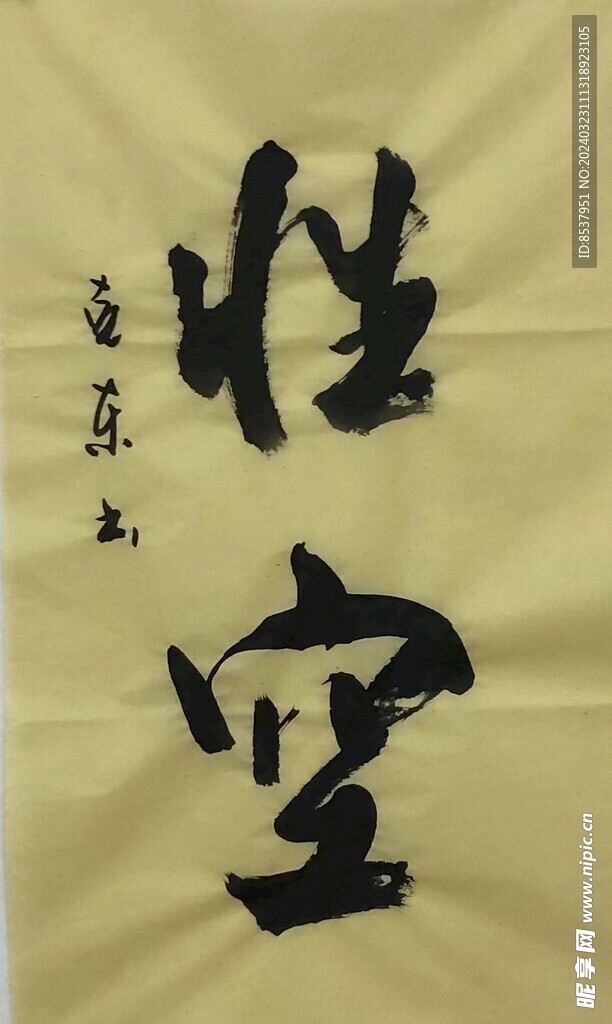 性空
克东书
ID:8537951 NO:20240323111318923105
昵享网 www.nipic.cn